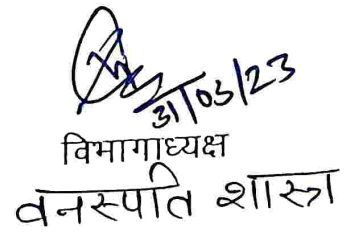 31/03/23
विभागाध्यक्ष
वनस्पति शास्त्र